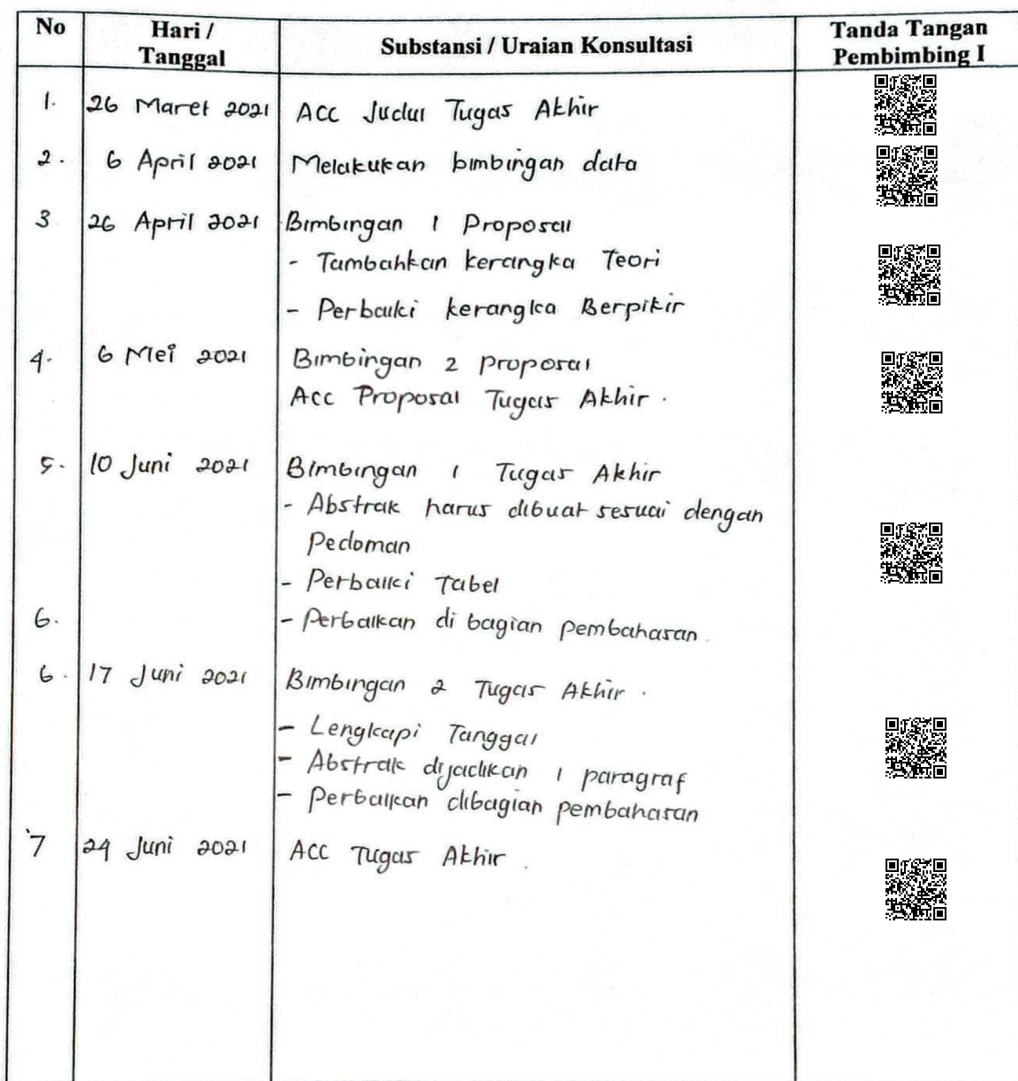 No Hari / Tanggal Substansi / Uraian Konsultasi Tanda Tangan Pembimbing I
1. 26 Maret 2021 ACC Judul Tugas Akhir
2. 6 April 2021 Melakukan bimbingan data
3 26 April 2021 Bimbingan 1 Proposal
- Tambahkan kerangka Teori
- Perbaiki kerangka Berpikir
4. 6 Mei 2021 Bimbingan 2 proposal
Acc Proposal Tugas Akhir.
5. 10 Juni 2021 Bimbingan 1 Tugas Akhir
- Abstrak harus dibuat sesuai dengan
Pedoman
- Perbaiki Tabel
6. - Perbaikan di bagian pembahasan.
6. 17 Juni 2021 Bimbingan 2 Tugas Akhir.
- Lengkapi Tanggal
- Abstrak dijadikan 1 paragraf
- Perbaikan dibagian pembahasan
7 24 Juni 2021 ACC Tugas Akhir.